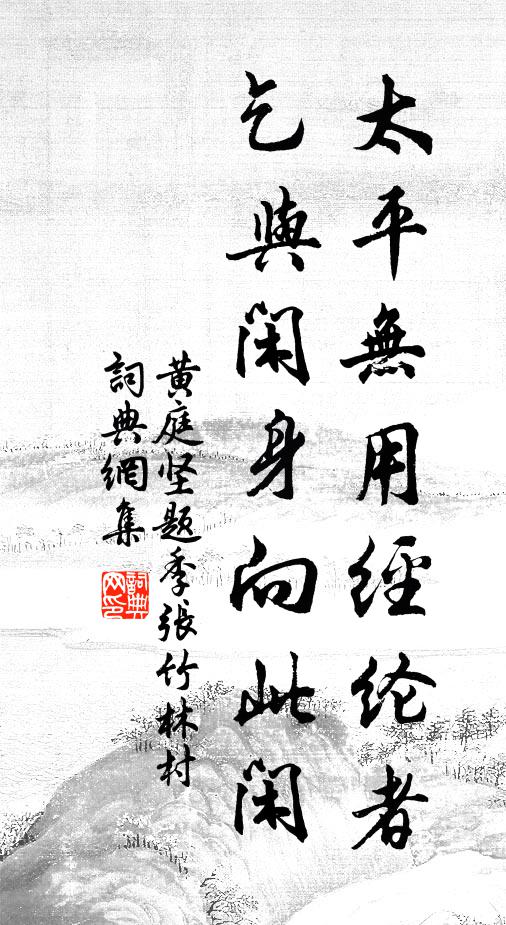 太平無用經纶者
乞與閑身向此閑
黄庭坚题季張竹林村
詞典網集
詞典网印